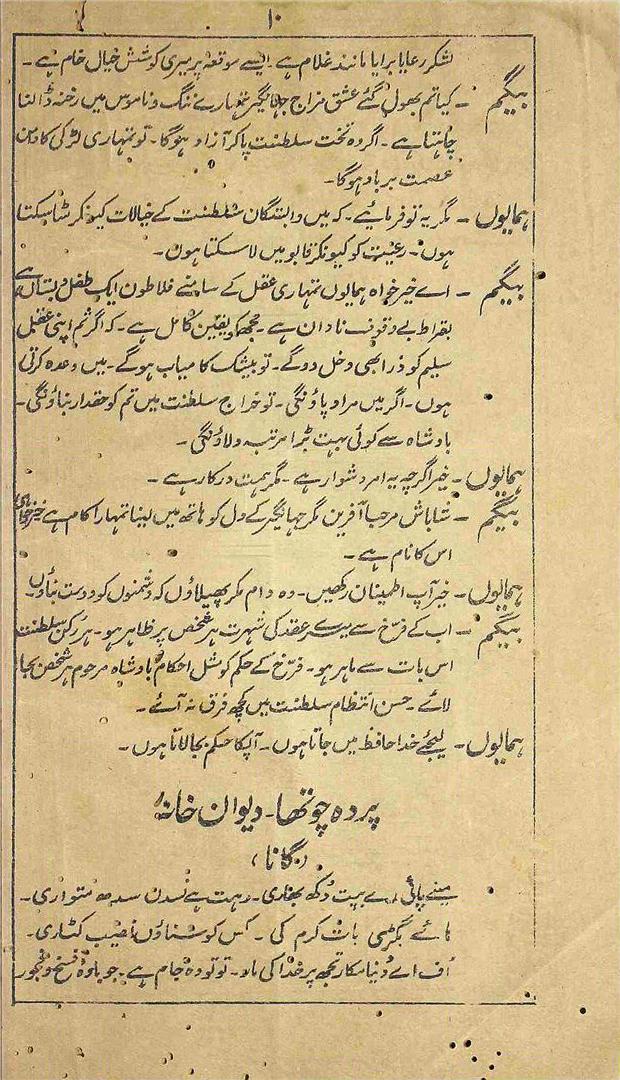 ۱۰
لشکر رعایا برایا مانند غلام ہے۔ ایسے موقعہ پر میری کوشش خیال خام ہے۔
بیگم ۔ کیا تم بھول گئے عشق مزاج جہانگیر تمہارے ننگ و ناموس میں رخنہ ڈالنا
چاہتا ہے۔ اگر وہ تخت سلطنت پا کر آزاد ہوگا۔ تو تمہاری لڑکی کا دامن
عصمت برباد ہوگا۔
ہمایوں ۔ مگر یہ تو فرمائیے۔ کہ میں وابستگان سلطنت کے خیالات کیونکر مٹا سکتا
ہوں۔ رعیت کو کیونکر قابو میں لا سکتا ہوں۔
بیگم ۔ اے خیر خواہ ہمایوں تمہاری عقل کے سامنے فلاطون ایک طفل دبستاں ہے
بقراط بے وقوف نادان ہے۔ مجھ کو یقین کامل ہے۔ کہ اگر تم اپنی عقل
سلیم کو ذرا بھی دخل دوگے۔ تو بیشک کامیاب ہوگے۔ میں وعدہ کرتی
ہوں۔ اگر میں مراد پاؤنگی۔ تو خراج سلطنت میں تم کو حقدار بناؤنگی۔
بادشاہ سے کوئی بہت بڑا مرتبہ دلاؤنگی۔
ہمایوں ۔ خیر اگرچہ یہ امر دشوار ہے۔ مگر ہمت درکار ہے۔
بیگم ۔ شاباش مرحبا آفرین مگر جہانگیر کے دل کو ہاتھ میں لینا تمہارا کام ہے
اس کا نام ہے۔
ہمایوں ۔ خیر آپ اطمینان رکھیں۔ وہ دام مکر پھیلاؤں کہ دشمنوں کو دوست بناؤں
بیگم ۔ اب کے فرخ سے میرے عقد کی شہرت ہر شخص پر ظاہر ہو۔ ہر رکن سلطنت
اس بات سے ماہر ہو۔ فرخ کے حکم کو مثل احکام بادشاہ مرحوم ہر شخص بجا
لائے۔ حسن انتظام سلطنت میں کچھ فرق نہ آئے۔
ہمایوں ۔ لیجئے خدا حافظ میں جاتا ہوں۔ آپکا حکم بجا لاتا ہوں۔
پردہ چوتھا۔ دیوان خانہ
(گانا)
مینے پائی رے بپت دکھ بھاری۔ رہت ہے نسدن سدھ متواری۔
ہائے بگڑی بات کرم کی۔ کس کو سناؤں نصیب کٹاری۔
اُف اے دنیا مکار تجھ پر خدا کی مار۔ تو تو وہ جام ہے۔ جو بادۂ فسخ و فجور